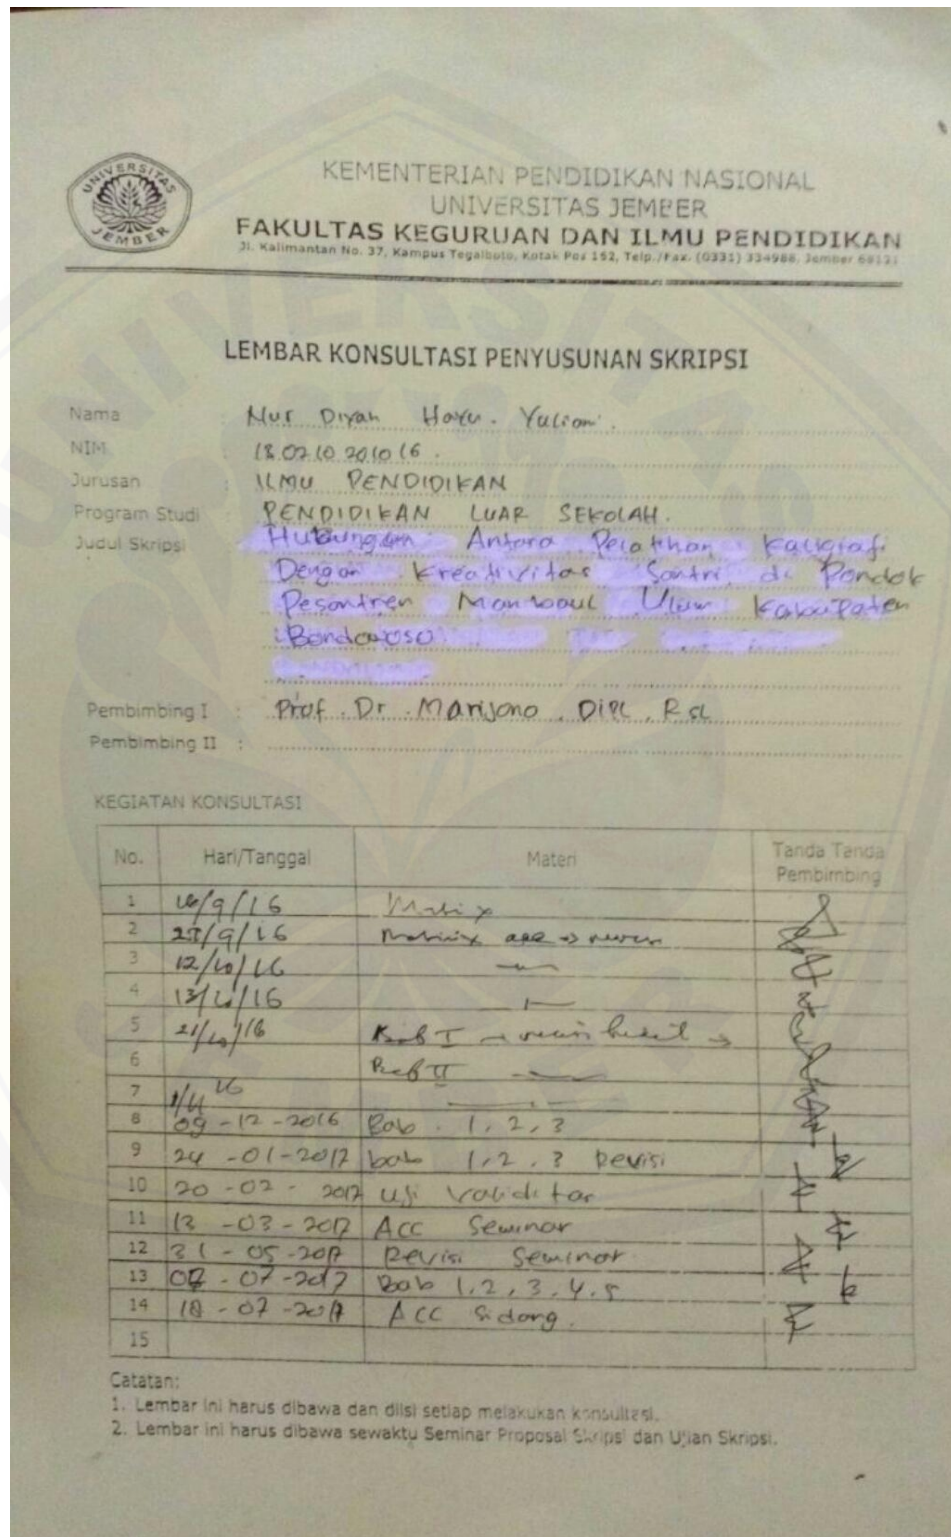 UNIVERSITAS JEMBER
KEMENTERIAN PENDIDIKAN NASIONAL
UNIVERSITAS JEMBER
FAKULTAS KEGURUAN DAN ILMU PENDIDIKAN
Jl. Kalimantan No. 37, Kampus Tegalboto, Kotak Pos 162, Telp./Fax. (0331) 334988, Jember 68121
LEMBAR KONSULTASI PENYUSUNAN SKRIPSI
Nama : Nur Diyah Yuliani
NIM :
Jurusan : ILMU PENDIDIKAN
Program Studi : PENDIDIKAN LUAR SEKOLAH.
Judul Skripsi : Hubungan Antara Pelatihan Kaligrafi
Dengan Kreativitas Santri di Pondok
Pesantren Manbaul Ulum Kabupaten
Bondowoso
Pembimbing I : Prof. Dr. Marijono, Dipl, Rsl
Pembimbing II :
KEGIATAN KONSULTASI
No. Hari/Tanggal Materi Tanda Tanda Pembimbing
1 16/9/16 Matrix
2 /9/16 Matrix acc → revisi
3 12/10/16
4 13/10/16
5 21/10/16 Bab I →
6 Bab II
7
8 09-12-2016 Bab. 1, 2, 3
9 24-01-2017 bab 1, 2, 3 Revisi
10 20-02-2017 uji validitas
11 13-03-2017 ACC Seminar
12 31-05-2017 Revisi Seminar
13 -07-2017 Bab 1, 2, 3, 4, 5
14 18-07-2017 ACC Sidang.
15
Catatan:
1. Lembar ini harus dibawa dan diisi setiap melakukan konsultasi.
2. Lembar ini harus dibawa sewaktu Seminar Proposal Skripsi dan Ujian Skripsi.